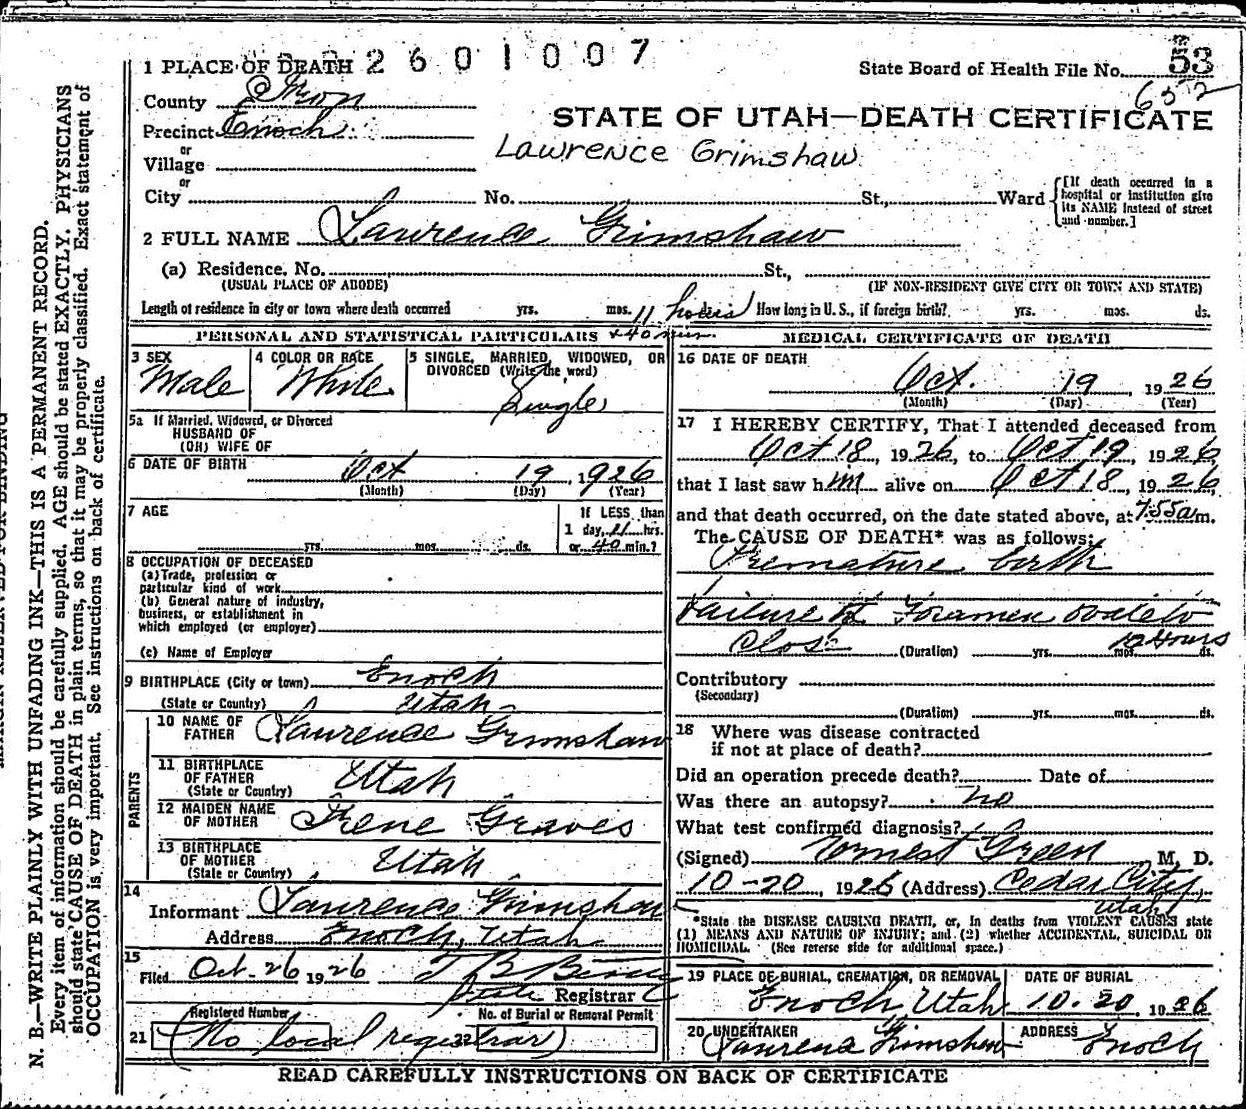 1 PLACE OF DEATH 2601007
State Board of Health File No. 53
652
County Iron
STATE OF UTAH—DEATH CERTIFICATE
Precinct Enoch
Lawrence Grimshaw
or
Village
or
City No. St., Ward
[If death occurred in a hospital or institution give its NAME instead of street and number.]
2 FULL NAME Lawrence Grimshaw
(a) Residence. No. St.,
(USUAL PLACE OF ABODE) (IF NON-RESIDENT GIVE CITY OR TOWN AND STATE)
Length of residence in city or town where death occurred yrs. mos. 11 hours + 40 min. How long in U. S., if foreign birth? yrs. mos. ds.
PERSONAL AND STATISTICAL PARTICULARS
3 SEX Male
4 COLOR OR RACE White
5 SINGLE, MARRIED, WIDOWED, OR DIVORCED (Write the word)
Single
5a If Married, Widowed, or Divorced
HUSBAND OF
(OR) WIFE OF
6 DATE OF BIRTH Oct 19, 1926
(Month) (Day) (Year)
7 AGE
yrs. mos. ds.
If LESS than
1 day, 11 hrs.
or 40 min.?
8 OCCUPATION OF DECEASED
(a) Trade, profession or
particular kind of work
(b) General nature of industry,
business, or establishment in
which employed (or employer)
(c) Name of Employer
9 BIRTHPLACE (City or town) Enoch
(State or Country) Utah
PARENTS
10 NAME OF FATHER Lawrence Grimshaw
11 BIRTHPLACE OF FATHER Utah
(State or Country)
12 MAIDEN NAME OF MOTHER Irene Graves
13 BIRTHPLACE OF MOTHER Utah
(State or Country)
14
Informant Lawrence Grimshaw
Address Enoch, Utah
15
Filed Oct. 26 1926
Registrar
Registered Number
No. of Burial or Removal Permit
21 (No local registrar) 22
MEDICAL CERTIFICATE OF DEATH
16 DATE OF DEATH
Oct. 19, 1926
(Month) (Day) (Year)
17 I HEREBY CERTIFY, That I attended deceased from
Oct 18, 1926, to Oct 19, 1926
that I last saw him alive on Oct 18, 1926,
and that death occurred, on the date stated above, at 7:55 a m.
The CAUSE OF DEATH* was as follows:
Premature birth
Failure of Foramen ovale to
Close (Duration) yrs. mos. 12 Hours ds.
Contributory
(Secondary)
(Duration) yrs. mos. ds.
18 Where was disease contracted
if not at place of death?
Did an operation precede death? Date of
Was there an autopsy? no
What test confirmed diagnosis?
(Signed) Green M. D.
10-20, 1926 (Address) Cedar City,
Utah
*State the DISEASE CAUSING DEATH, or, in deaths from VIOLENT CAUSES state
(1) MEANS AND NATURE OF INJURY; and (2) whether ACCIDENTAL, SUICIDAL OR
HOMICIDAL. (See reverse side for additional space.)
19 PLACE OF BURIAL, CREMATION, OR REMOVAL
Enoch, Utah
DATE OF BURIAL
10-20 1926
20 UNDERTAKER
Lawrence Grimshaw
ADDRESS
Enoch
READ CAREFULLY INSTRUCTIONS ON BACK OF CERTIFICATE
N. B.—WRITE PLAINLY WITH UNFADING INK—THIS IS A PERMANENT RECORD.
Every item of information should be carefully supplied. AGE should be stated EXACTLY. PHYSICIANS
should state CAUSE OF DEATH in plain terms, so that it may be properly classified. Exact statement of
OCCUPATION is very important. See instructions on back of certificate.